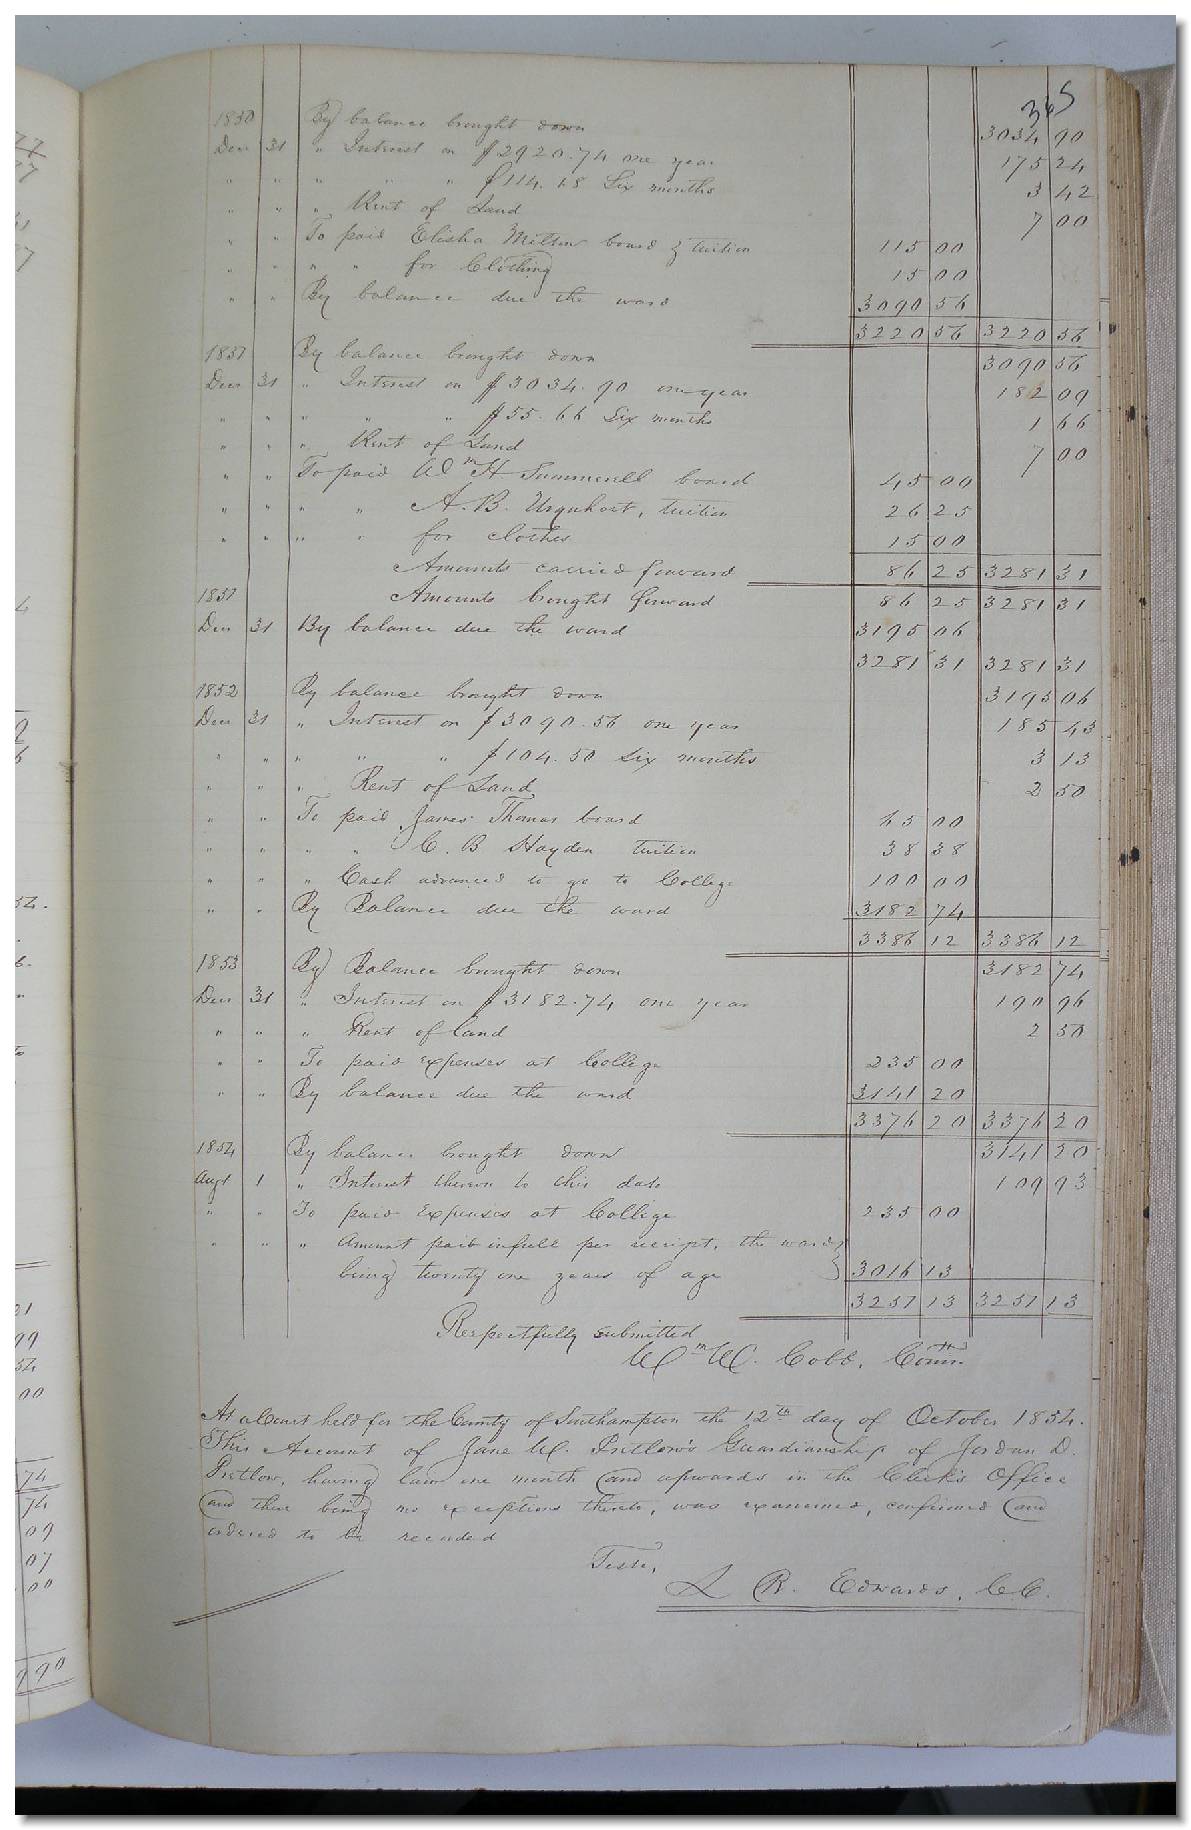 365
1850 By balance brought down 3034 90
Decr 31 " Interest on $2920.74 one year 175 24
" " " " " $114.18 Six months 3 42
" " " Rent of Land 7 00
" " To paid Elisha Milton board & tuition 115 00
" " " " for Clothing 15 00
" " By balance due the ward 3090 56
3220 56 3220 56
1851 By balance brought down 3090 56
Decr 31 " Interest on $3034.90 one year 182 09
" " " " " $55.66 Six months 1 66
" " " Rent of Land 7 00
" " To paid Wm H Summerell board 45 00
" " " " A. B. Urquhart, tuition 26 25
" " " " for clothes 15 00
Amounts carried forward 86 25 3281 31
1851 Amounts brought forward 86 25 3281 31
Decr 31 By balance due the ward 3195 06
3281 31 3281 31
1852 By balance brought down 3195 06
Decr 31 " Interest on $3090.56 one year 185 43
" " " " " $104.50 Six months 3 13
" " " Rent of Land 2 50
" " To paid James Thomas board 65 00
" " " " C. B Hayden tuition 38 38
" " " Cash advanced to go to College 100 00
" " By Balance due the ward 3182 74
3386 12 3386 12
1853 By Balance brought down 3182 74
Decr 31 " Interest on $3182.74 one year 190 96
" " " Rent of land 2 50
" " To paid expenses at College 235 00
" " By balance due the ward 3141 20
3376 20 3376 20
1854 By balance brought down 3141 20
Augt 1 " Interest thereon to this date 109 93
" " To paid expenses at College 235 00
" " " Amount paid in full per receipt, the ward
being twenty one years of age 3016 13
3251 13 3251 13
Respectfully submitted
Wm W. Cobb, Comr.
At a Court held for the County of Southampton the 12th day of October 1854.
This Account of Jane W. Pretlow's Guardianship of Jordan D.
Pretlow, having lain one month and upwards in the Clerk's Office
and there being no exceptions thereto, was examined, confirmed and
ordered to be recorded
Teste,
L R. Edwards, C.C.